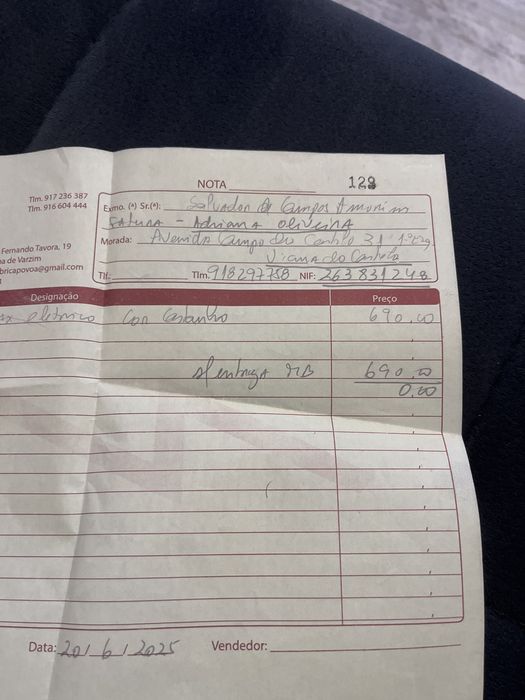 NOTA 129
Tlm. 917 236 387
Tlm. 916 604 444
Exmo. (ª) Sr.(ª): Salvador de Campos Amorim
FATURA - ADRIANA OLIVEIRA
Fernando Tavora, 19
Morada: Avenida Campo do Castelo 31 1º Esq
a de Varzim
Viana do Castelo
bricapovoa@gmail.com
Tlf.: Tlm. 918297758 NIF: 263831248
Designação Preço
eletrico Cor Castanho 690.00
entrega MB 690.00
0.00
Data: 20/6/2025 Vendedor: